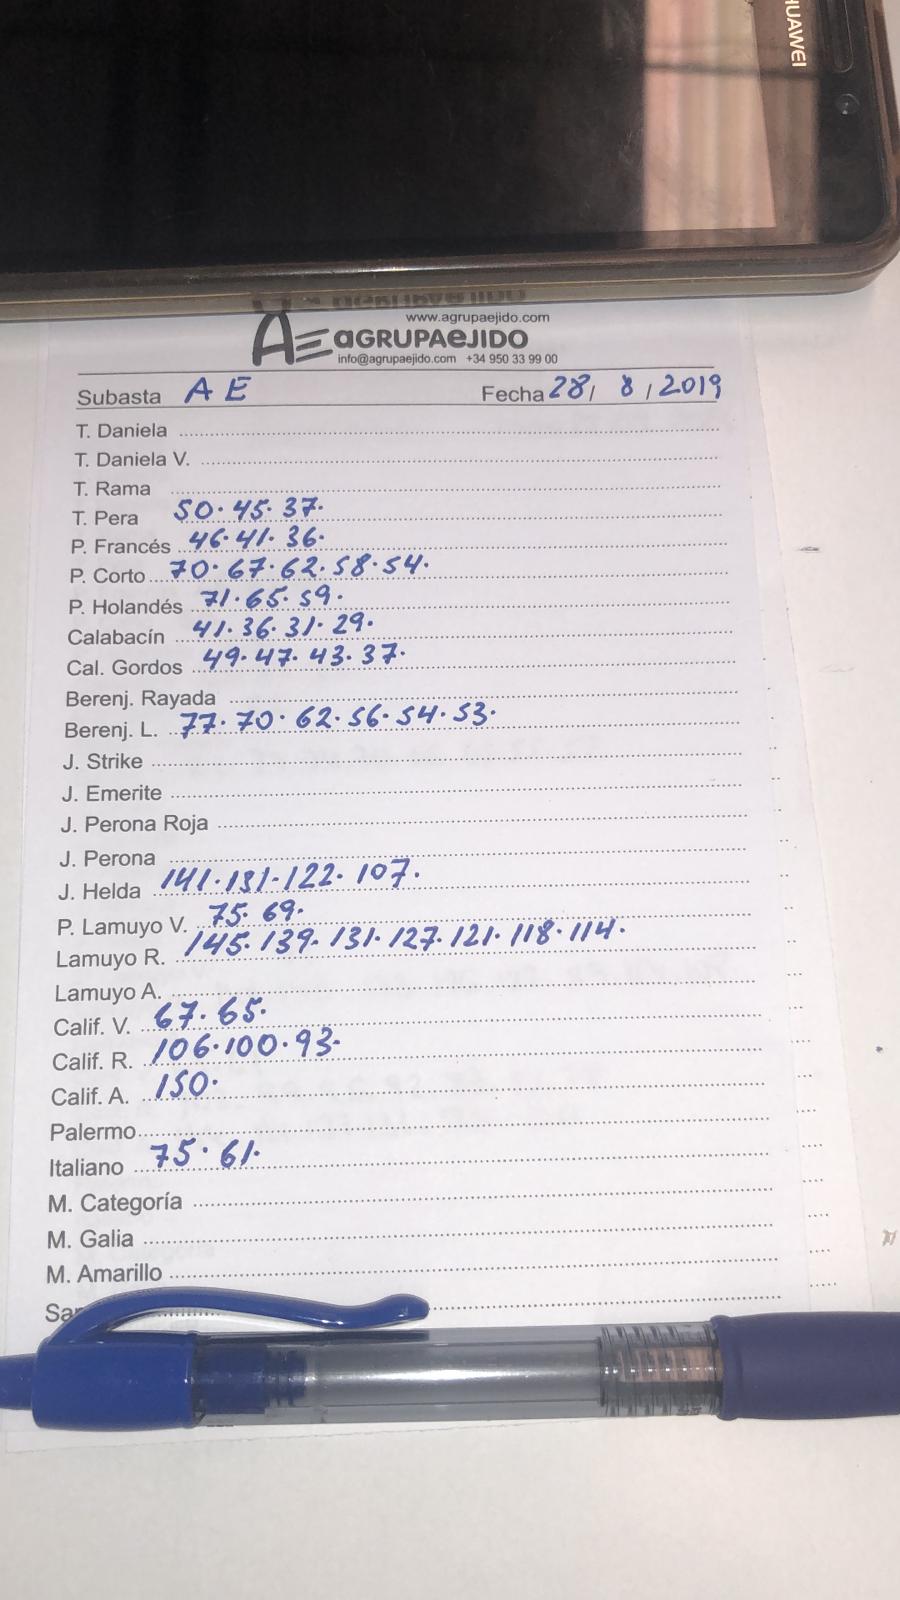 HUAWEI
www.agrupaejido.com
AE aGRUPAeJIDO
info@agrupaejido.com +34 950 33 99 00
Subasta A E Fecha 28/ 8 / 2019
T. Daniela
T. Daniela V.
T. Rama
T. Pera 50. 45. 37.
P. Francés 46. 41. 36.
P. Corto 70. 67. 62. 58. 54.
P. Holandés 71. 65. 59.
Calabacín 41. 36. 31. 29.
Cal. Gordos 49. 47. 43. 37.
Berenj. Rayada
Berenj. L. 77. 70. 62. 56. 54. 53.
J. Strike
J. Emerite
J. Perona Roja
J. Perona
J. Helda 141. 131. 122. 107.
P. Lamuyo V. 75. 69.
Lamuyo R. 145. 139. 131. 127. 121. 118. 114.
Lamuyo A.
Calif. V. 67. 65.
Calif. R. 106. 100. 93.
Calif. A. 150.
Palermo
Italiano 75. 61.
M. Categoría
M. Galia
M. Amarillo